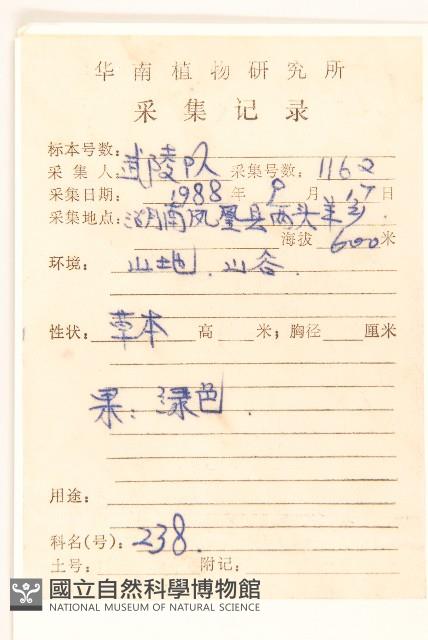 华南植物研究所
采集记录
标本号数：
采集人：武陵队 采集号数：1162
采集日期：1988年9月17日
采集地点：湖南凤凰县两头羊乡.
海拔 600米
环境：山地.山谷.
性状：草本 高 米；胸径 厘米
果：绿色.
用途：
科名(号)：238.
土号： 附记：
國立自然科學博物館
NATIONAL MUSEUM OF NATURAL SCIENCE